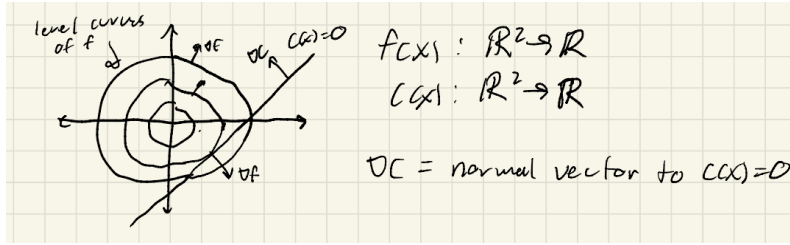 level curves
of f
∇f
∇C
C(x)=0
f(x) : ℝ²→ℝ
C(x) : ℝ²→ℝ
∇f
∇C = normal vector to C(x)=0